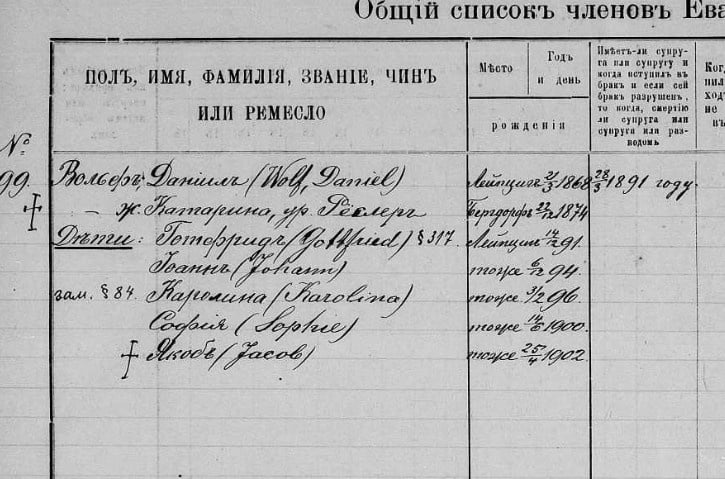 Общій списокъ членовъ Ева
ПОЛЪ, ИМЯ, ФАМИЛІЯ, ЗВАНІЕ, ЧИНЪ
ИЛИ РЕМЕСЛО
Мѣсто
Годъ
и день
рожденія
Имѣетъ-ли супру-
га или супругу и
когда вступилъ въ
бракъ и если сей
бракъ разрушенъ,
то когда, смертію
ли супруга или
супруга или раз-
водомъ
Ког
пил
ход
не
въ
№
99. Вольфъ, Даніилъ (Wolf, Daniel) Лейпцигъ 21/3 1868 28/3 1891 году.
– ж. Катарина, ур. Рёслеръ Бергдорфъ 22/12 1874
Дѣти: Готфридъ (Gottfried) § 317. Лейпцигъ 14/12 91.
Іоаннъ (Johann) тоже 6/12 94.
зам. § 84. Каролина (Karolina) тоже 3/2 96.
Софія (Sophie) тоже 14/6 1900.
Якобъ (Jacob) тоже 25/4 1902.